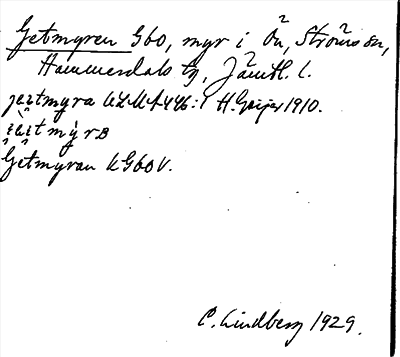 Getmyren G60, myr i Ön, Ströms sn,
Hammerdals tg, Jämtl. l.
jetmyra ULMA 446:1 H. Geijer 1910.
Getmyran k G60 V.
C. Lindberg 1929.